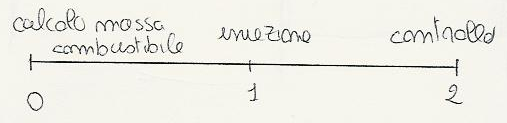 calcolo massa
combustibile
iniezione
controllo
0 1 2